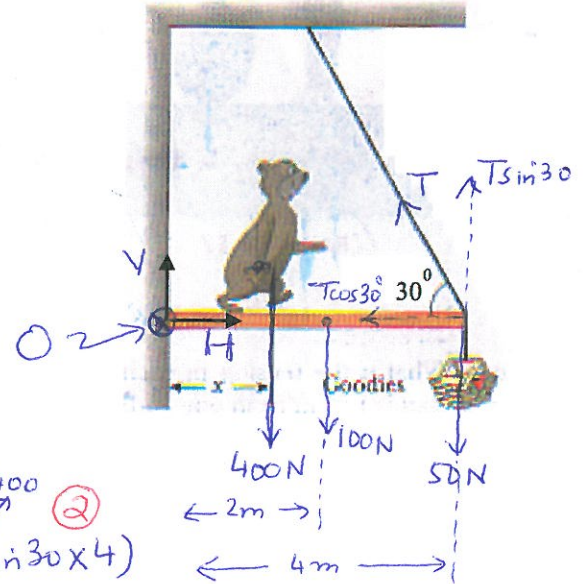 T
Tsin30
V
Tcos30° 30°
O
H
x
Goodies
100N
400N
50N
400
②
2m
in30×4)
4m